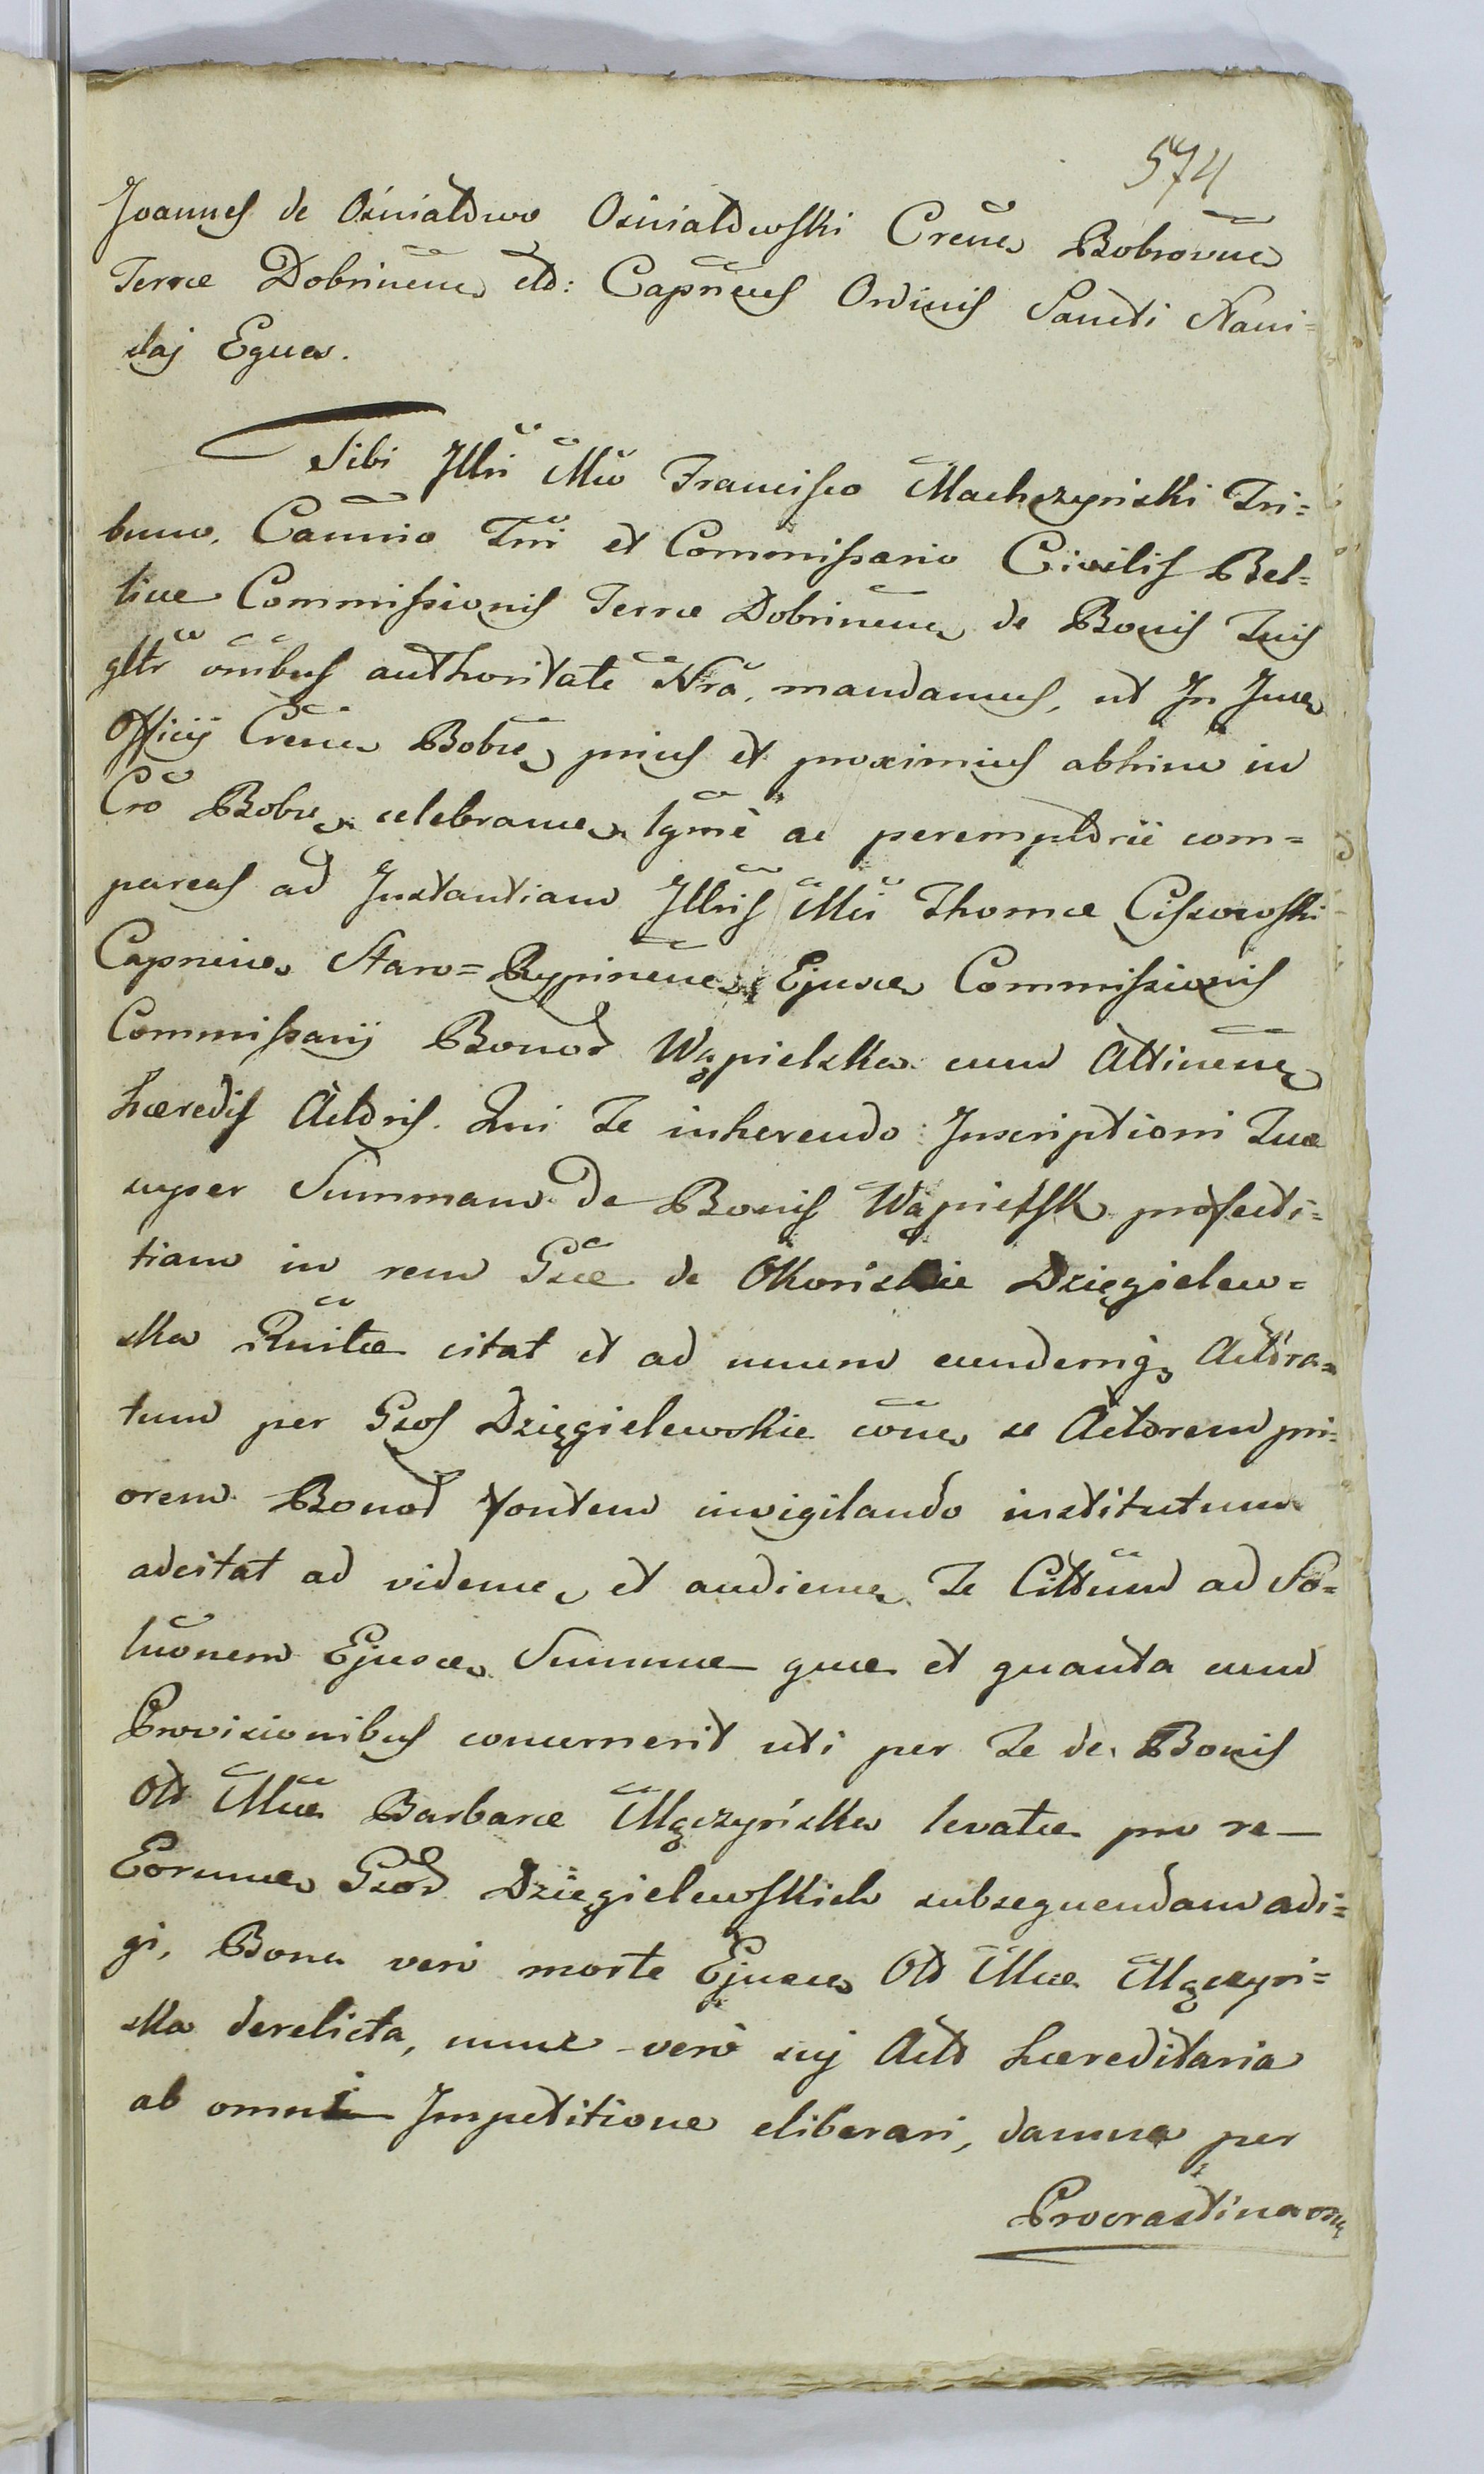 574
Joannes de Ośniałowo Ośniałowski Crense Bobrovnense
Terræ Dobrinense etc: Capneus Ordinis Sancti Stani=
slaj Eques.
Tibi Illri Mco Francisco Machczyński Tri=
buno, Cannio Tni et Commissario Civilis Bel=
licæ Commissionis Terræ Dobrinense de Bonis Tuis
gltr omibus authoritate Nra, mandamus, ut In Jure
Officij Crense Bobre, prius et proximius abhinc in
Cro Bobre celebrance lgmè ac peremptorie com=
pareas ad Instantiam Illris Mci Thomæ Cissowski
Capnense Staro=Rypinense Ejusce Commissionis
Commissarij Bonor Wąpielska cum Attinense
Hæredis Actoris. Qui Te inherendo Inscriptioni Tuæ
super Summam de Bonis Wąpielsk profecti=
tiam in rem Gsæ de Okońskie Dzięgielew=
ska Rnitæ citat et ad unum eundemq Actora=
tum per Gsos Dzięgielewskie cone se Actorem pri=
orem Bonor fontem invigilando institutum
adcitat ad videnne et audienne Te Cittum ad So=
luonem Ejusce Summæ quæ et quanta cum
Provisionibus concernerit uti per Te de Bonis
Ol Mcæ Barbaræ Mączyńska levatæ pro re
Eorumce Gsor Dzięgielewskich subsequendam adi=
gi, Bona verò morte Ejusce Ol Mcæ Mączyń=
ska derelicta, nunc verò sui Acto hæreditaria
ab omni Impetitione eliberari, damna per
Procrastinaone